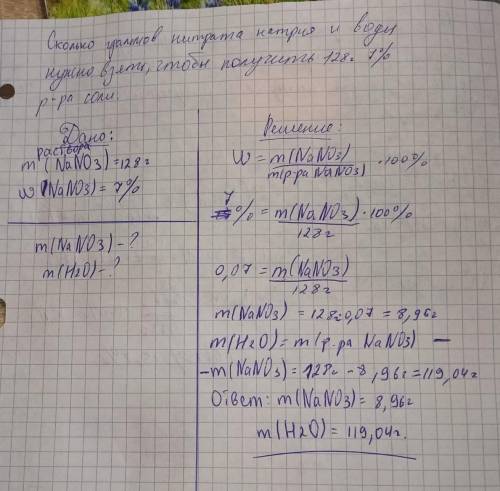 Сколько граммов нитрата натрия и воды
нужно взять, чтобы получить 128г 7%
р-ра соли.
Дано:
раствора
m (NaNO3)=128г
w (NaNO3)= 7%
m(NaNO3)-?
m(H2O)-?
Решение:
W = m(NaNO3) / m(р-ра NaNO3) · 100%
7% = m(NaNO3) / 128г · 100%
0,07 = m(NaNO3) / 128г
m(NaNO3) = 128г·0,07 = 8,96г
m(H2O)= m(р-ра NaNO3) –
-m(NaNO3)= 128г - 8,96г =119,04г
Ответ: m(NaNO3)= 8,96г
m(H2O)= 119,04г.